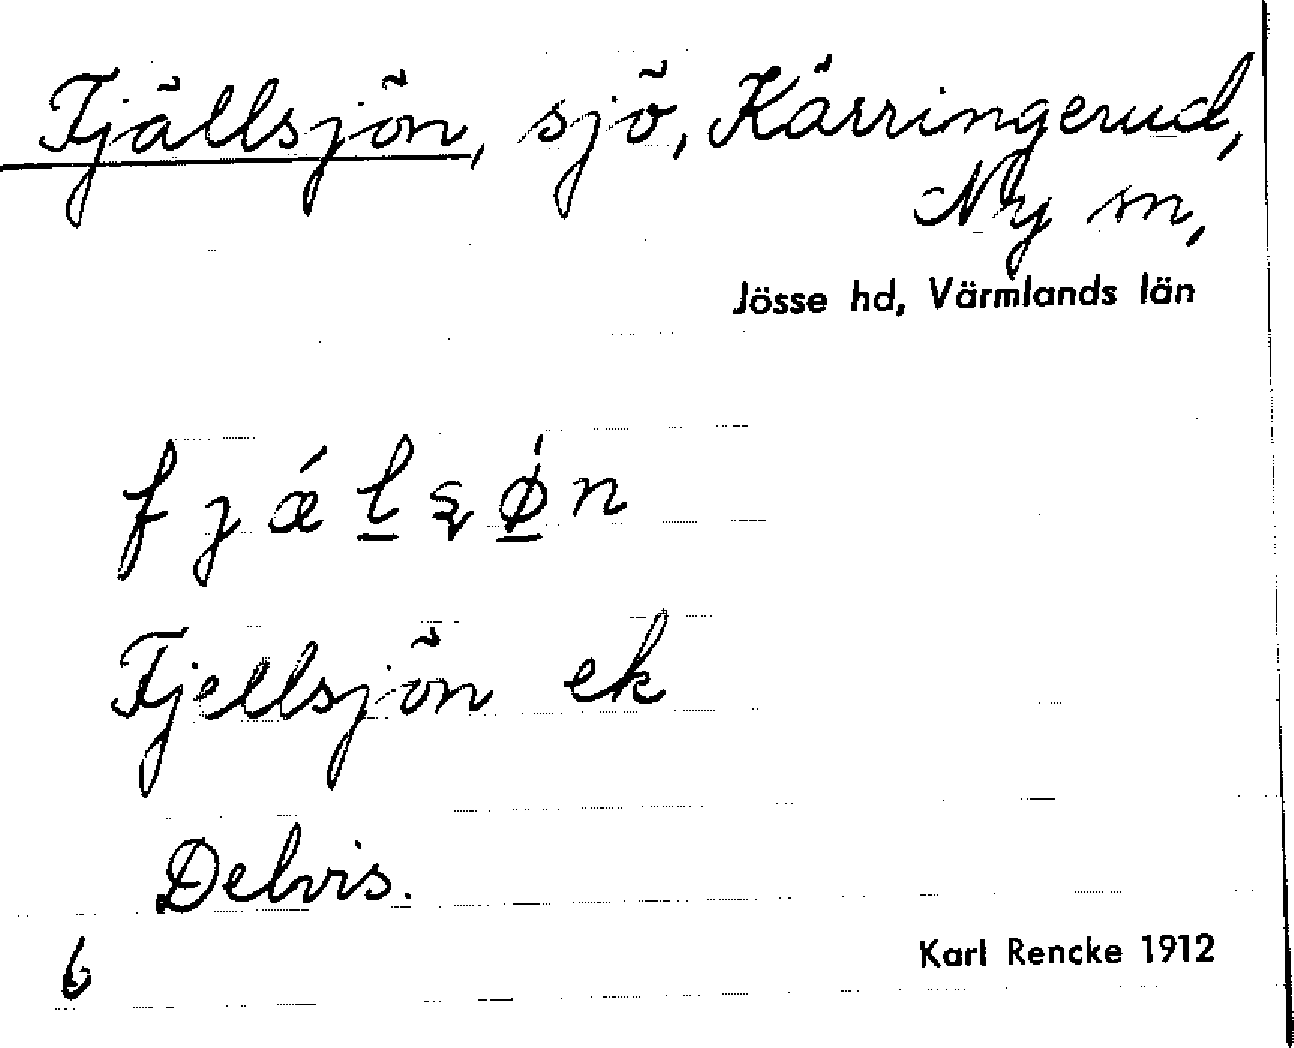 Fjällsjön, sjö, Kärringerud,
Ny sn,
Jösse hd, Värmlands län
fjǽl̲ʂǿ̲n
Fjellsjön ek
Delvis.
6
Karl Rencke 1912